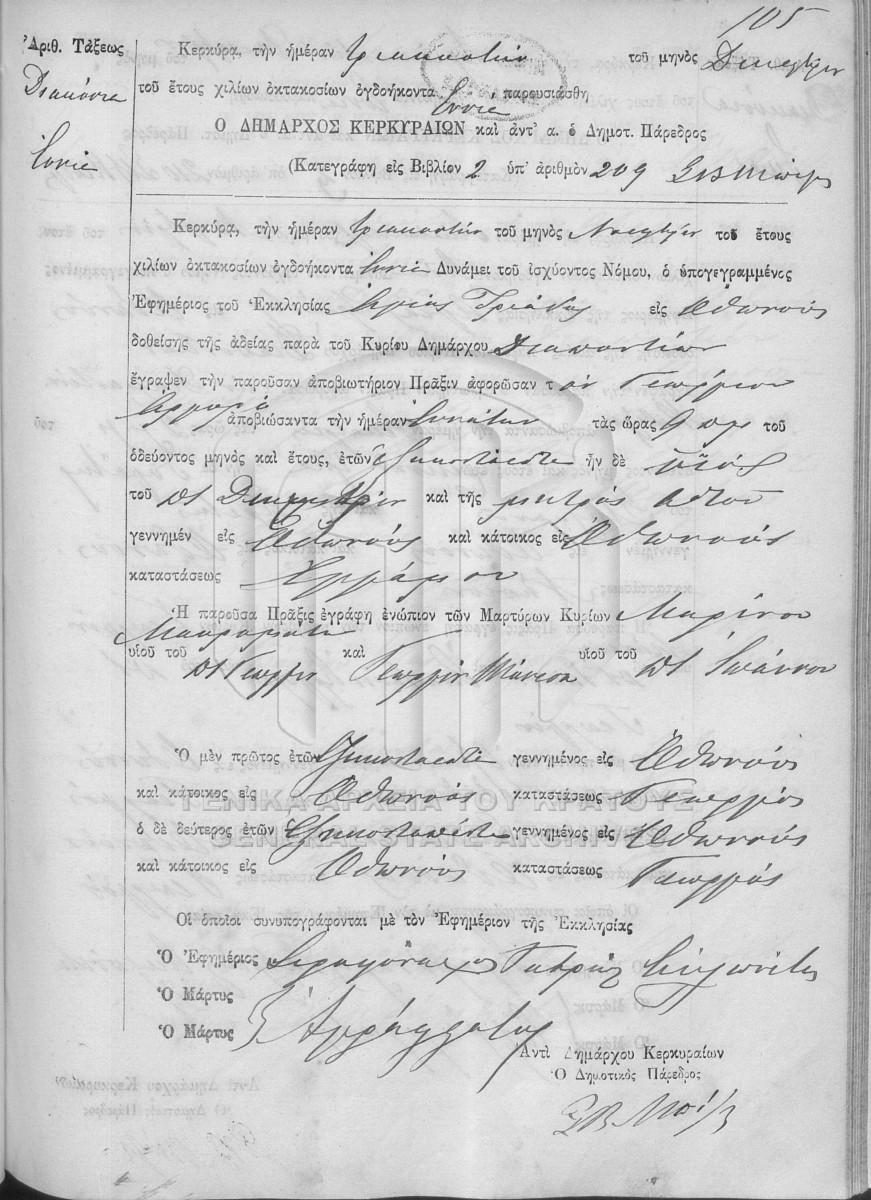 105
Ἀριθ. Τάξεως
Διακόσια
ἐννέα
Κερκύρα, τὴν ἡμέραν τριακοστὴν τοῦ μηνὸς Δεκεμβρίου
τοῦ ἔτους χιλίων ὀκτακοσίων ὀγδοήκοντα ἐννέα παρουσιάσθη
Ὁ ΔΗΜΑΡΧΟΣ ΚΕΡΚΥΡΑΙΩΝ καὶ ἀντ' α. ὁ Δημοτ. Πάρεδρος
(Κατεγράφη εἰς Βιβλίον 2 ὑπ' ἀριθμὸν 209
Κερκύρα, τὴν ἡμέραν τριακοστὴν τοῦ μηνὸς Νοεμβρίου τοῦ ἔτους
χιλίων ὀκτακοσίων ὀγδοήκοντα ἐννέα Δυνάμει τοῦ ἰσχύοντος Νόμου, ὁ ὑπογεγραμμένος
Ἐφημέριος τοῦ Ἐκκλησίας Ἁγίας Τριάδος εἰς Ὀθωνοὺς
δοθείσης τῆς ἀδείας παρὰ τοῦ Κυρίου Δημάρχου Διαποντίων
ἔγραψεν τὴν παροῦσαν ἀποβιωτήριον Πρᾶξιν ἀφορῶσαν τ ὸν Γεώργιον
ἀποβιώσαντα τὴν ἡμέραν ἐννάτην τὰς ὥρας 9 π μ τοῦ
ὁδεύοντος μηνὸς καὶ ἔτους, ἐτῶν ἦν δὲ υἱὸς
τοῦ Δημητρίου καὶ τῆς μητρὸς αὐτοῦ
γεννημέν εἰς Ὀθωνοὺς καὶ κάτοικος εἰς Ὀθωνοὺς
καταστάσεως
Ἡ παροῦσα Πρᾶξις ἐγράφη ἐνώπιον τῶν Μαρτύρων Κυρίων Μαρίνου
υἱοῦ τοῦ Γεωργίου καὶ Γεωργίου υἱοῦ τοῦ Ἰωάννου
Ὁ μὲν πρῶτος ἐτῶν γεννημένος εἰς Ὀθωνοὺς
καὶ κάτοικος εἰς Ὀθωνοὺς καταστάσεως Γεωργὸς
ὁ δὲ δεύτερος ἐτῶν γεννημένος εἰς Ὀθωνοὺς
καὶ κάτοικος εἰς Ὀθωνοὺς καταστάσεως Γεωργὸς
ΓΕΝΙΚΑ ΑΡΧΕΙΑ ΤΟΥ ΚΡΑΤΟΥΣ
GENERAL STATE ARCHIVES
Οἱ ὁποῖοι συνυπογράφονται μὲ τὸν Ἐφημέριον τῆς Ἐκκλησίας
Ὁ Ἐφημέριος
Ὁ Μάρτυς
Ὁ Μάρτυς Ἀγράμματοι
Ἀντὶ Δημάρχου Κερκυραίων
Ὁ Δημοτικὸς Πάρεδρος